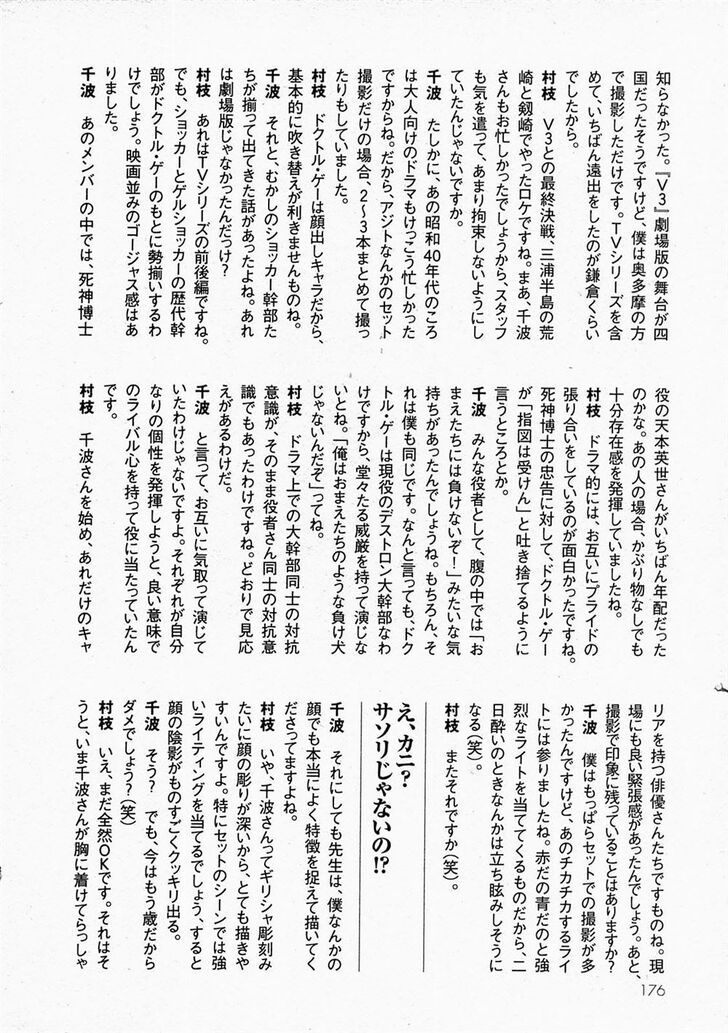 知らなかった。『V3』劇場版の舞台が四
国だったそうですけど、僕は奥多摩の方
で撮影しただけです。TVシリーズを含
めて、いちばん遠出をしたのが鎌倉くらい
でしたから。
村枝　V3との最終決戦、三浦半島の荒
崎と剱崎でやったロケですね。まあ、千波
さんもお忙しかったでしょうから、スタッフ
も気を遣って、あまり拘束しないようにし
ていたんじゃないですか。
千波　たしかに、あの昭和40年代のころ
は大人向けのドラマもけっこう忙しかった
ですからね。だから、アジトなんかのセット
撮影だけの場合、2〜3本まとめて撮っ
たりもしていました。
村枝　ドクトル・ゲーは顔出しキャラだから、
基本的に吹き替えが利きませんものね。
千波　それと、むかしのショッカー幹部た
ちが揃って出てきた話があったよね。あれ
は劇場版じゃなかったんだっけ?
村枝　あれはTVシリーズの前後編ですね。
でも、ショッカーとゲルショッカーの歴代幹
部がドクトル・ゲーのもとに勢揃いするわ
けでしょう。映画並みのゴージャス感はあ
りました。
千波　あのメンバーの中では、死神博士
役の天本英世さんがいちばん年配だった
のかな。あの人の場合、かぶり物なしでも
十分存在感を発揮していましたね。
村枝　ドラマ的には、お互いにプライドの
張り合いをしているのが面白かったですね。
死神博士の忠告に対して、ドクトル・ゲー
が「指図は受けん」と吐き捨てるように
言うところとか。
千波　みんな役者として、腹の中では「お
まえたちには負けないぞ!」みたいな気
持ちがあったんでしょうね。もちろん、そ
れは僕も同じです。なんと言っても、ドク
トル・ゲーは現役のデストロン大幹部なわ
けですから、堂々たる威厳を持って演じな
いとね。「俺はおまえたちのような負け犬
じゃないんだぞ」ってね。
村枝　ドラマ上での大幹部同士の対抗
意識が、そのまま役者さん同士の対抗意
識でもあったわけですね。どおりで見応
えがあるわけだ。
千波　と言って、お互いに気取って演じて
いたわけじゃないですよ。それぞれが自分
なりの個性を発揮しようと、良い意味で
のライバル心を持って役に当たっていたん
です。
村枝　千波さんを始め、あれだけのキャ
リアを持つ俳優さんたちですものね。現
場にも良い緊張感があったんでしょう。あと、
撮影で印象に残っていることはありますか?
千波　僕はもっぱらセットでの撮影が多
かったんですけど、あのチカチカするライ
トには参りましたね。赤だの青だのと強
烈なライトを当ててくるものだから、二
日酔いのときなんかは立ち眩みしそうに
なる(笑)。
村枝　またそれですか(笑)。
え、カニ?
サソリじゃないの!?
千波　それにしても先生は、僕なんかの
顔でも本当によく特徴を捉えて描いてく
ださってますよね。
村枝　いや、千波さんってギリシャ彫刻み
たいに顔の彫りが深いから、とても描きや
すいんですよ。特にセットのシーンでは強
いライティングを当てるでしょう、すると
顔の陰影がものすごくクッキリ出る。
千波　そう?　でも、今はもう歳だから
ダメでしょう?(笑)
村枝　いえ、まだ全然OKです。それはそ
うと、いま千波さんが胸に着けてらっしゃ
176